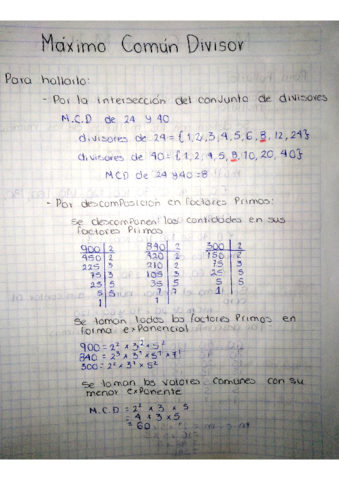 Máximo Común Divisor
Para hallarlo:
- Por la intersección del conjunto de divisores
M.C.D de 24 y 40
divisores de 24 = {1,2,3,4,5,6,8,12,24}
divisores de 40 = {1,2,4,5,8,10,20,40}
MCD de 24 y 40 = 8
- Por descomposición en factores Primos:
Se descomponen las cantidades en sus
factores Primos
900 | 2   840 | 2   300 | 2
450 | 2   420 | 2   150 | 2
225 | 3   210 | 2   75 | 3
75 | 3   105 | 3   25 | 5
25 | 5   35 | 5   5 | 5
5 | 5   7 | 7   1
1   1
Se toman todos los factores Primos en
forma exponencial
900 = 2² x 3² x 5²
840 = 2³ x 3¹ x 5¹ x 7¹
300 = 2² x 3¹ x 5²
Se toman los valores comunes con su
menor exponente
M.C.D = 2² x 3 x 5
= 4 x 3 x 5
= 60